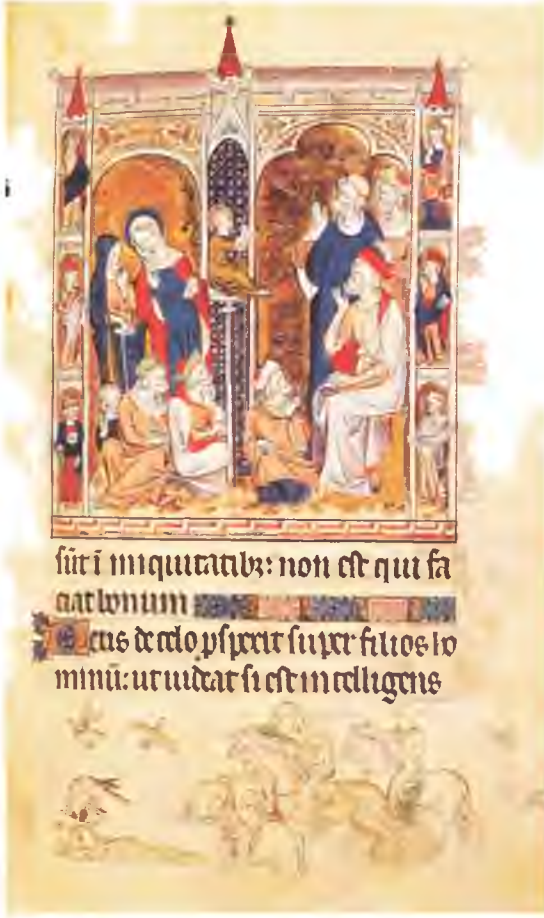 sūt ī iniquitatibꝫ: non est qui fa
ciat bonum
Deus de celo pspexit super filios ho
minū: ut uideat si est intelligens